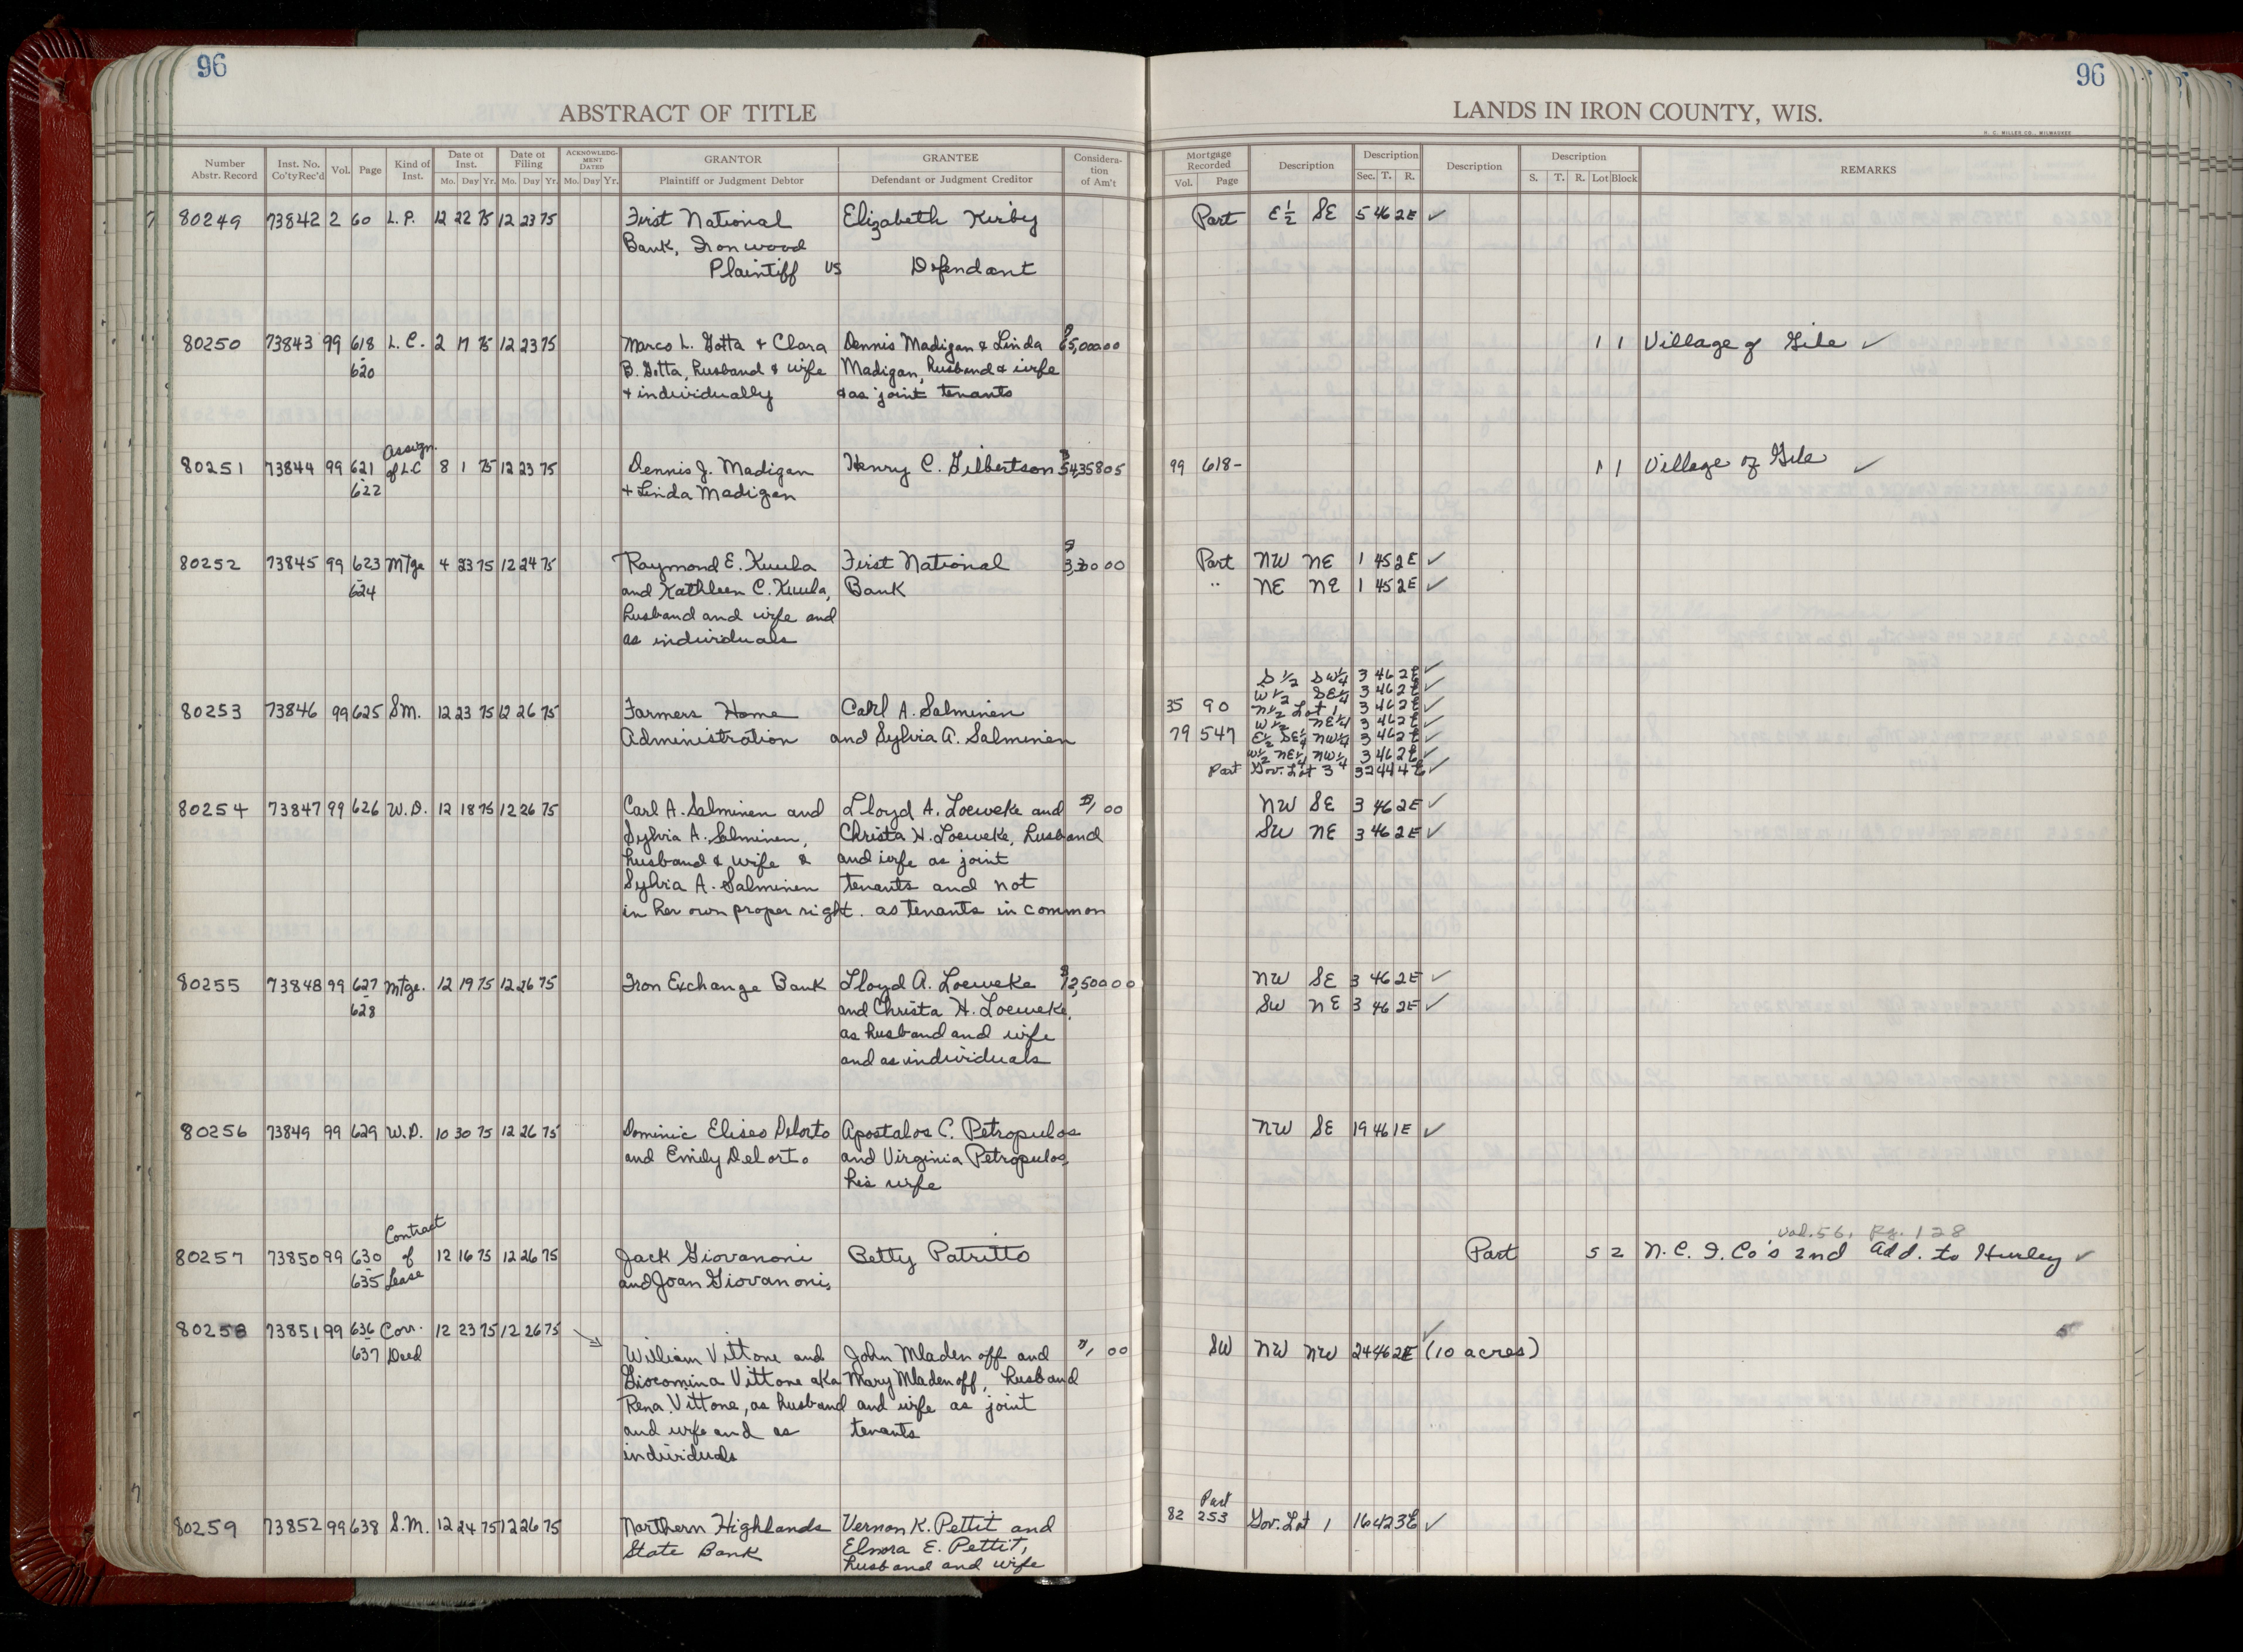 96
96
ABSTRACT OF TITLE
LANDS IN IRON COUNTY, WIS.
H. C. MILLER CO., MILWAUKEE
Number Abstr. Record Inst. No. Co'ty Rec'd Vol. Page Kind of Inst. Date of Inst. Mo. Day Yr. Date of Filing Mo. Day Yr. ACKNOWLEDGMENT DATED Mo. Day Yr. GRANTOR Plaintiff or Judgment Debtor GRANTEE Defendant or Judgment Creditor Consideration of Am't
Mortgage Recorded Vol. Page Description Description Sec. T. R. Description Description S. T. R. Lot Block REMARKS
80249 73842 2 60 L.P. 12 22 75 12 23 75 First National Elizabeth Kirby Part E ½ SE 5 46 2E ✓
Bank, Ironwood
Plaintiff vs Defendant
80250 73843 99 618 L.C. 2 17 75 12 23 75 Marco L. Gotta & Clara Dennis Madigan & Linda 1 1 Village of Gile ✓
620 B. Gotta, husband & wife Madigan, husband & wife
& individually & as joint tenants
Assign.
80251 73844 99 621 of L.C 8 1 75 12 23 75 Dennis J. Madigan Henry C. Gilbertson 99 618- 1 1 Village of Gile ✓
622 & Linda Madigan
80252 73845 99 623 Mtge 4 23 75 12 24 75 Raymond E. Kuula First National Part NW NE 1 45 2E ✓
624 and Kathleen C. Kuula, Bank " NE NE 1 45 2E ✓
husband and wife and
as individuals
S ½ SW¼ 3 46 2E ✓
W ½ SE¼ 3 46 2E ✓
80253 73846 99 625 S.M. 12 23 75 12 26 75 Farmers Home Carl A. Salminen 35 90 N½ Lot 1 3 46 2E ✓
W ½ NE¼ 3 46 2E ✓
Administration and Sylvia A. Salminen 79 547 E½ SE¼ NW¼ 3 46 2E ✓
W½ NE¼ NW¼ 3 46 2E ✓
Part Gov. Lot 3 32 44 4E ✓
80254 73847 99 626 W.D. 12 18 75 12 26 75 Carl A. Salminen and Lloyd A. Loeweke and $1 00 NW SE 3 46 2E ✓
Sylvia A. Salminen, Christa H. Loeweke, husband SW NE 3 46 2E ✓
husband & wife & and wife as joint
Sylvia A. Salminen tenants and not
in her own proper right. as tenants in common
80255 73848 99 627 Mtge. 12 19 75 12 26 75 Iron Exchange Bank Lloyd A. Loeweke $12,500 00 NW SE 3 46 2E ✓
628 and Christa H. Loeweke, SW NE 3 46 2E ✓
as husband and wife
and as individuals
80256 73849 99 629 W.D. 10 30 75 12 26 75 Dominic Eliseo Delorto Apostalos C. Petropulos NW SE 19 46 1E ✓
and Emily Delorto and Virginia Petropulos,
his wife
Contract Vol. 56, Pg. 128
80257 73850 99 630 of 12 16 75 12 26 75 Jack Giovanoni Betty Patritto Part 5 2 N. C. I. Co's 2nd Add. to Hurley ✓
635 Lease and Joan Giovanoni,
80258 73851 99 636 Corr. 12 23 75 12 26 75
637 Deed William Vittone and John Mladenoff and $1 00 SW NW NW 24 46 2E ✓ (10 acres)
Giocomina Vittone aka Mary Mladenoff, husband
Rena Vittone, as husband and wife as joint
and wife and as tenants
individuals
Part
80259 73852 99 638 S.M. 12 24 75 12 26 75 Northern Highlands Vernon K. Pettit and 82 253 Gov. Lot 1 16 42 3E ✓
State Bank Elnora E. Pettit,
husband and wife